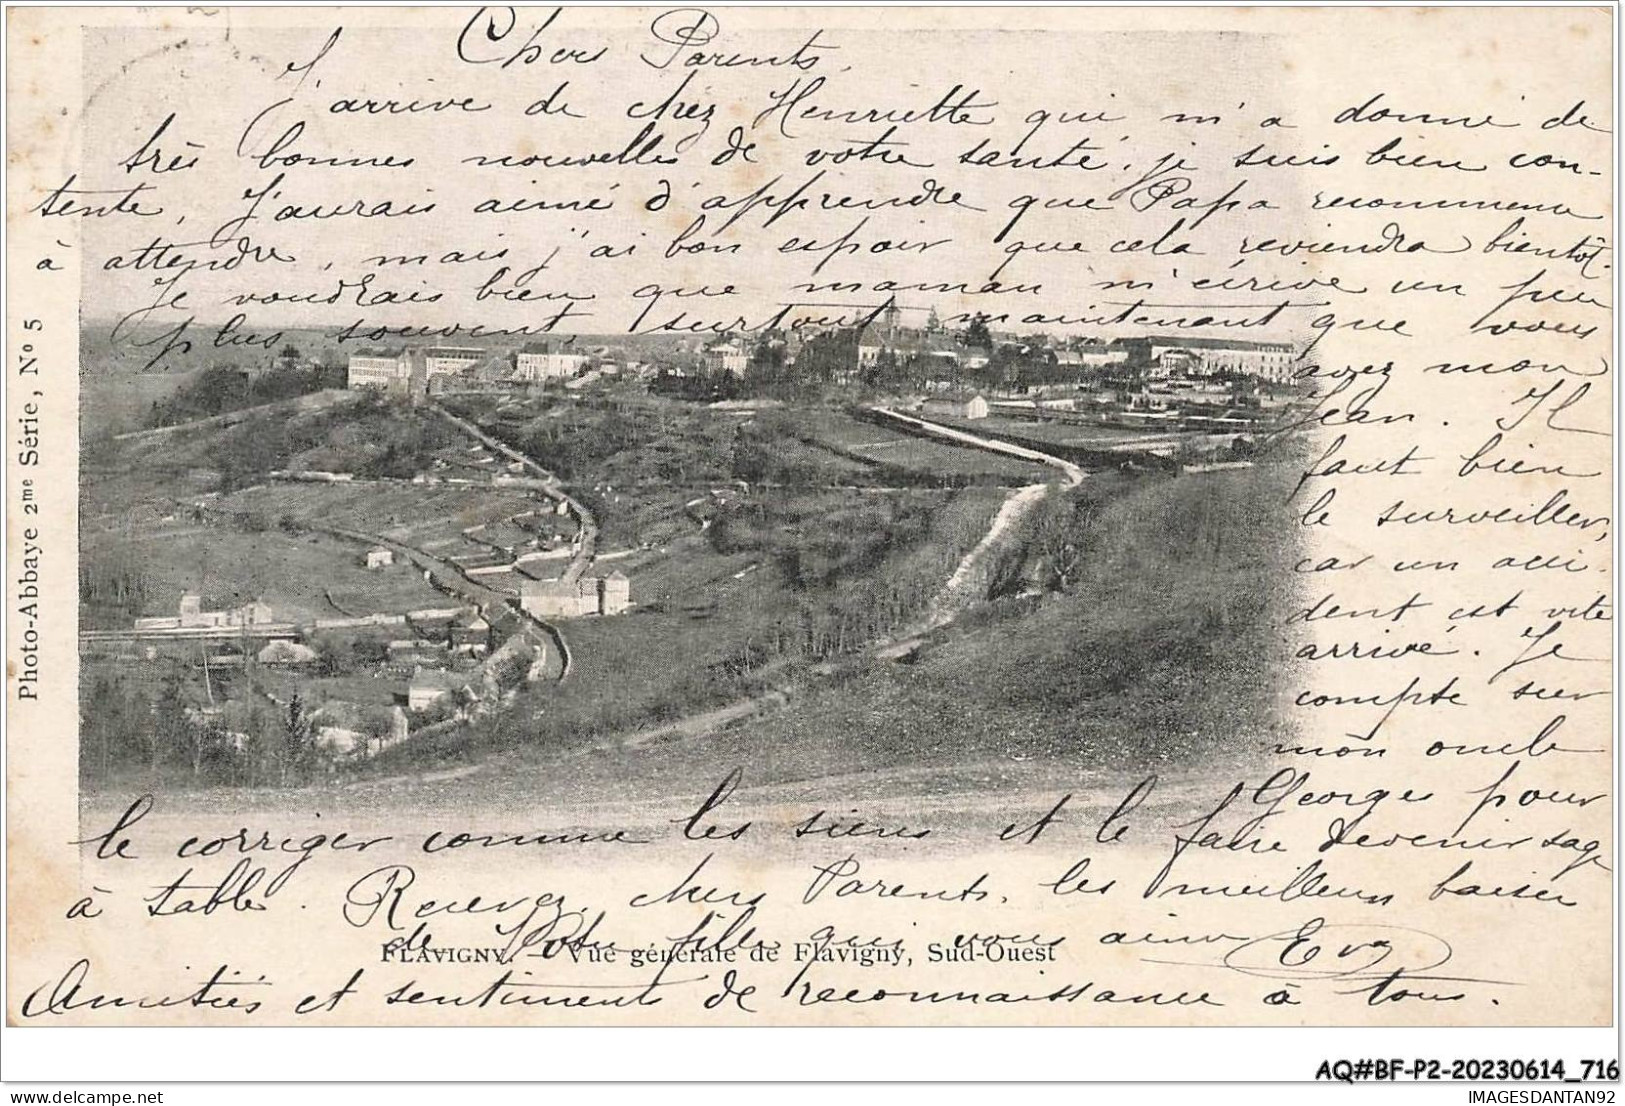 Chers Parents,
J'arrive de chez Henriette qui m'a donné de
très bonnes nouvelles de votre santé, je suis bien con-
tente. J'aurais aimé d'apprendre que Papa recommence
à attendre, mais j'ai bon espoir que cela reviendra bientôt.
Je voudrais bien que maman m'écrive un peu
plus souvent, surtout maintenant que vous
avez mon
Jean. Il
faut bien
le surveiller,
car un acci-
dent est vite
arrivé. Je
compte sur
mon oncle
Georges pour
le corriger comme les siens et le faire devenir sage
à table. Recevez, chers Parents, les meilleurs baisers
de votre fille qui vous aime
FLAVIGNY. — Vue générale de Flavigny, Sud-Ouest
Amitiés et sentiments de reconnaissance à tous.
Photo-Abbaye 2me Série, No 5
AQ#BF-P2-20230614_716
IMAGESDANTAN92